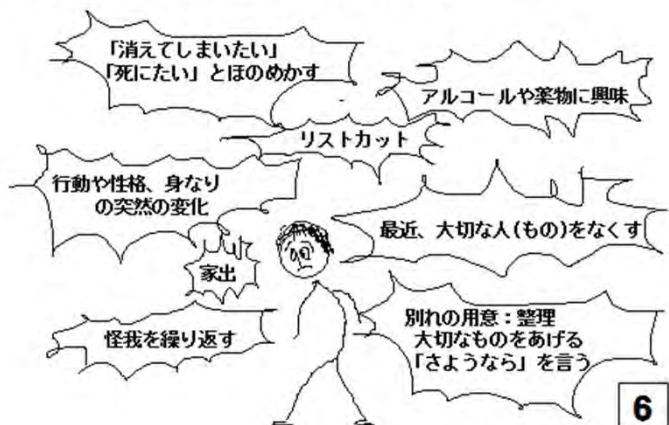 「消えてしまいたい」
「死にたい」とほのめかす
アルコールや薬物に興味
リストカット
行動や性格、身なり
の突然の変化
最近、大切な人(もの)をなくす
家出
怪我を繰り返す
別れの用意：整理
大切なものをあげる
「さようなら」を言う
6